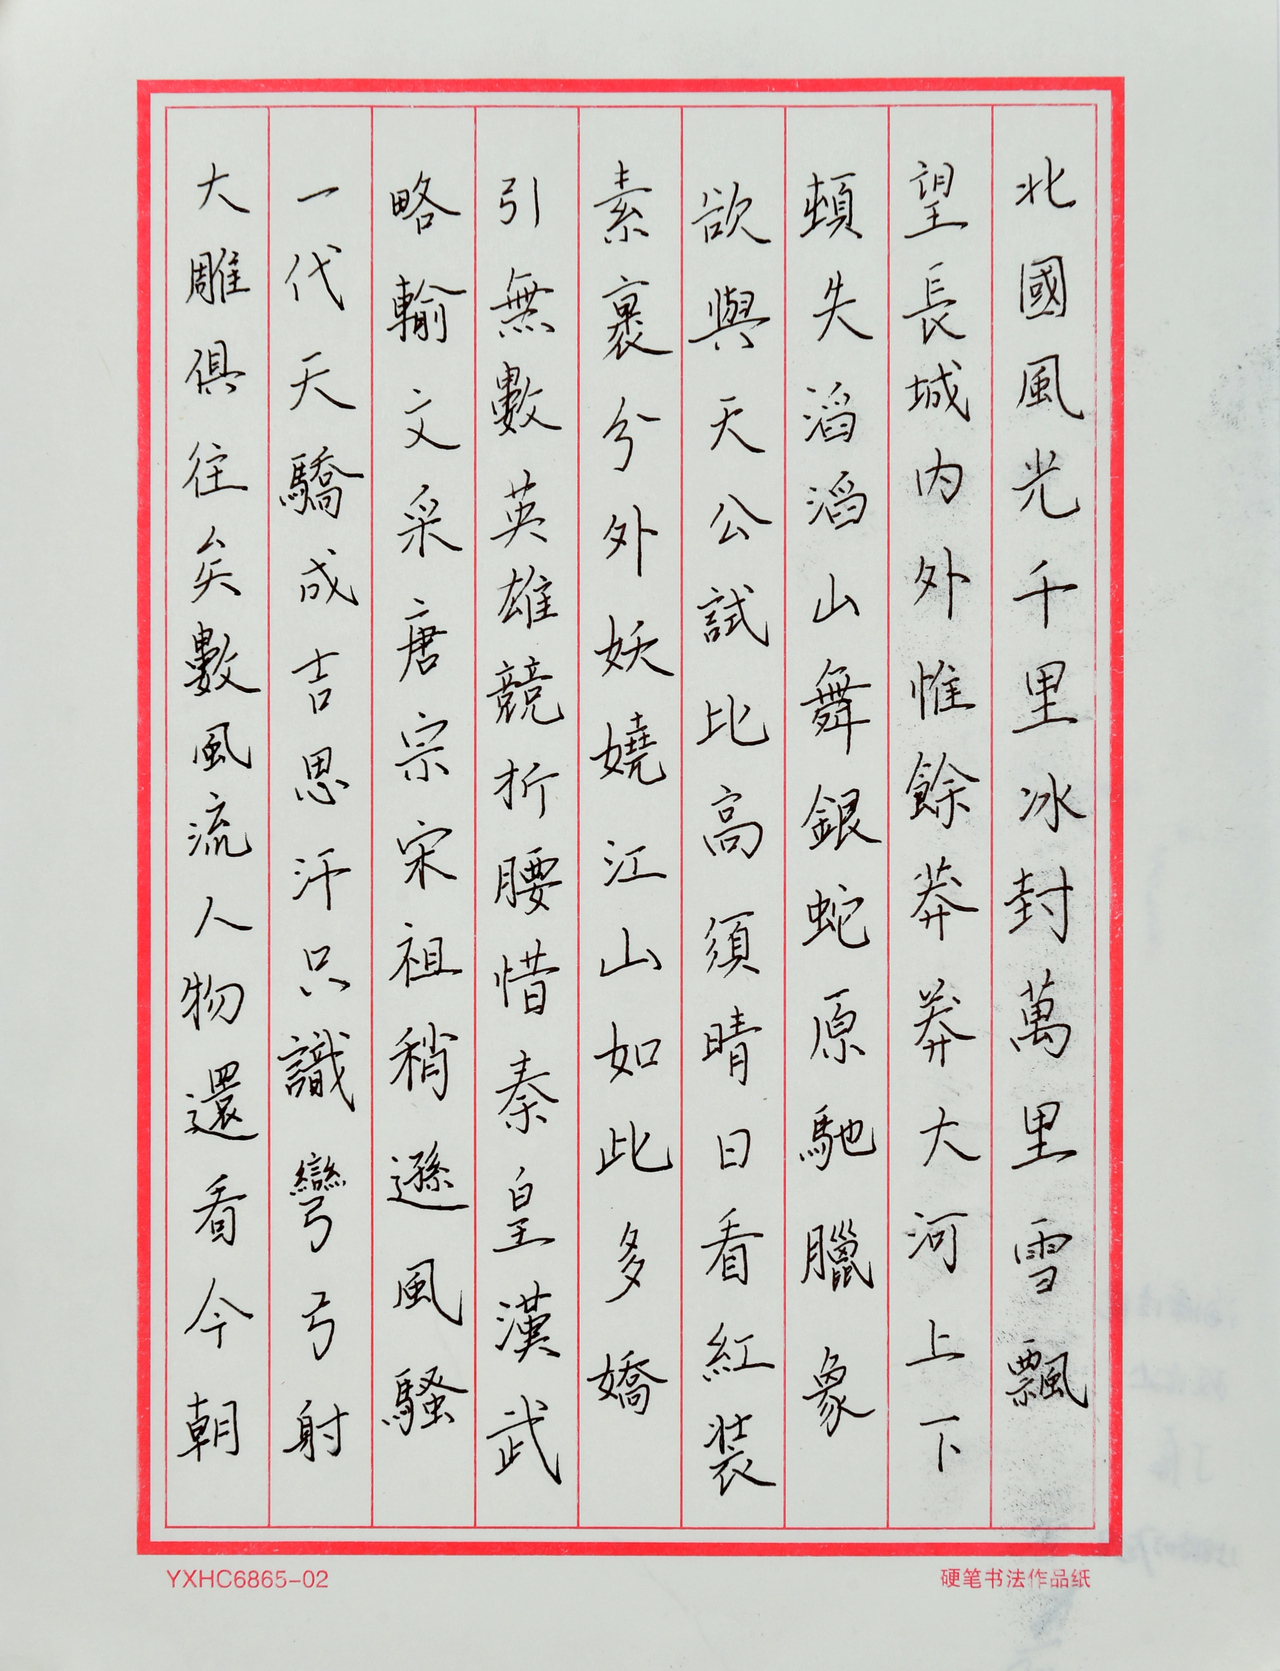 北國風光千里冰封萬里雪飄
望長城内外惟餘莽莽大河上下
頓失滔滔山舞銀蛇原馳臘象
欲與天公試比高須晴日看紅裝
素裹兮外妖嬈江山如此多嬌
引無數英雄競折腰惜秦皇漢武
略輸文采唐宗宋祖稍遜風騷
一代天驕成吉思汗只識彎弓射
大雕俱往矣數風流人物還看今朝
YXHC6865-02
硬笔书法作品纸